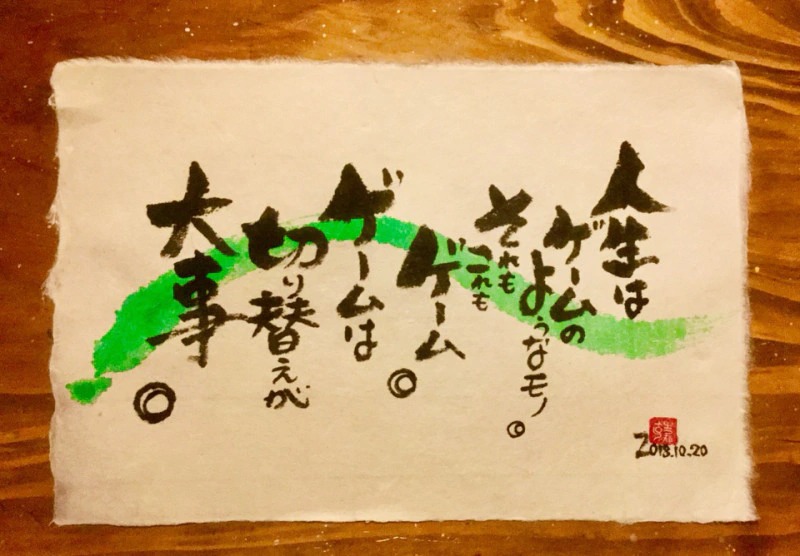 人生は
ゲームの
ようなモノ。
それも
これも
ゲーム。
ゲームは
切り替えが
大事。
2013.10.20